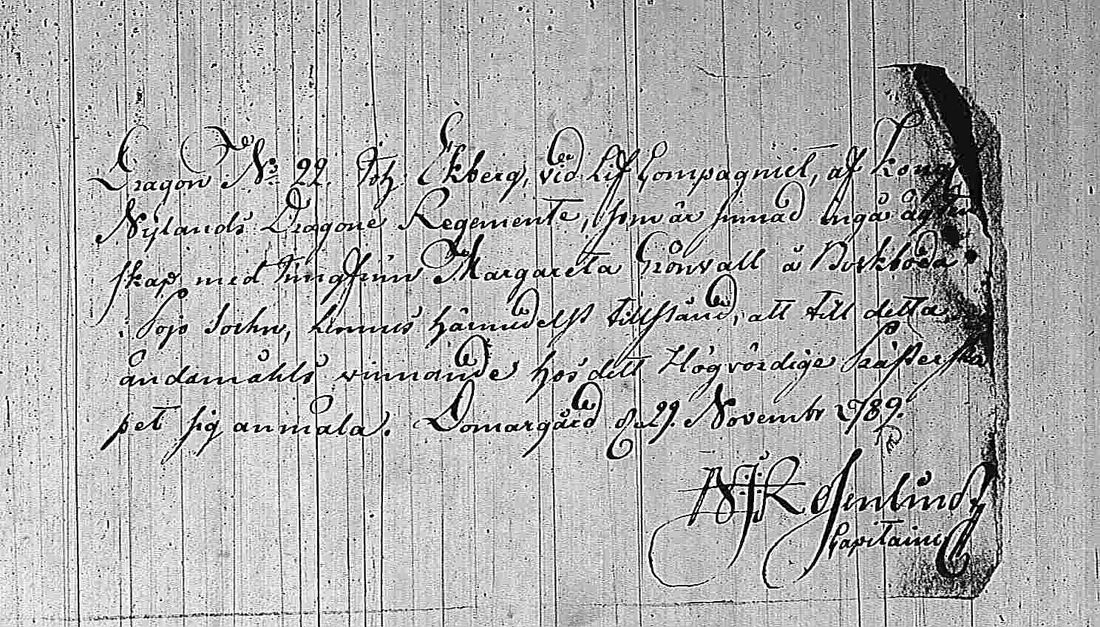 Dragon No 22. Joh Ekberg, vid Lif Compagniet, af Kongl
Nylands Dragone Regemente, som är sinnad ingå ägten
skap med Jungfrun Margareta Grönvall å Borkboda
i Pojo Sockn, lemnas härmedelst tillstånd, att till detta
ändamåhls vinnande hos dett Högvördige Präster ska
pet sig anmäla. Domargård d. 29. Novembr 1789.
Rosenlund
Capitaine